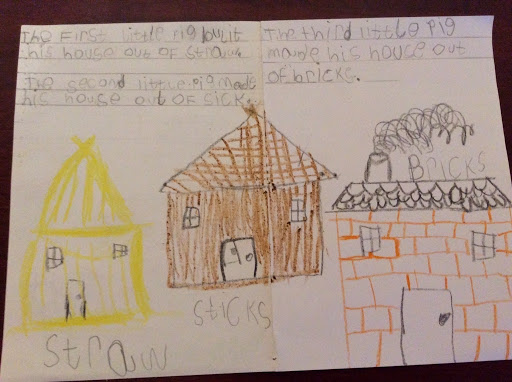 The First Little pig bwit
his house out of straw.
The second little pig made
his house out OF SICK.
The third little pig
made his house out
of bricks.
BRICKS
Sticks
Straw